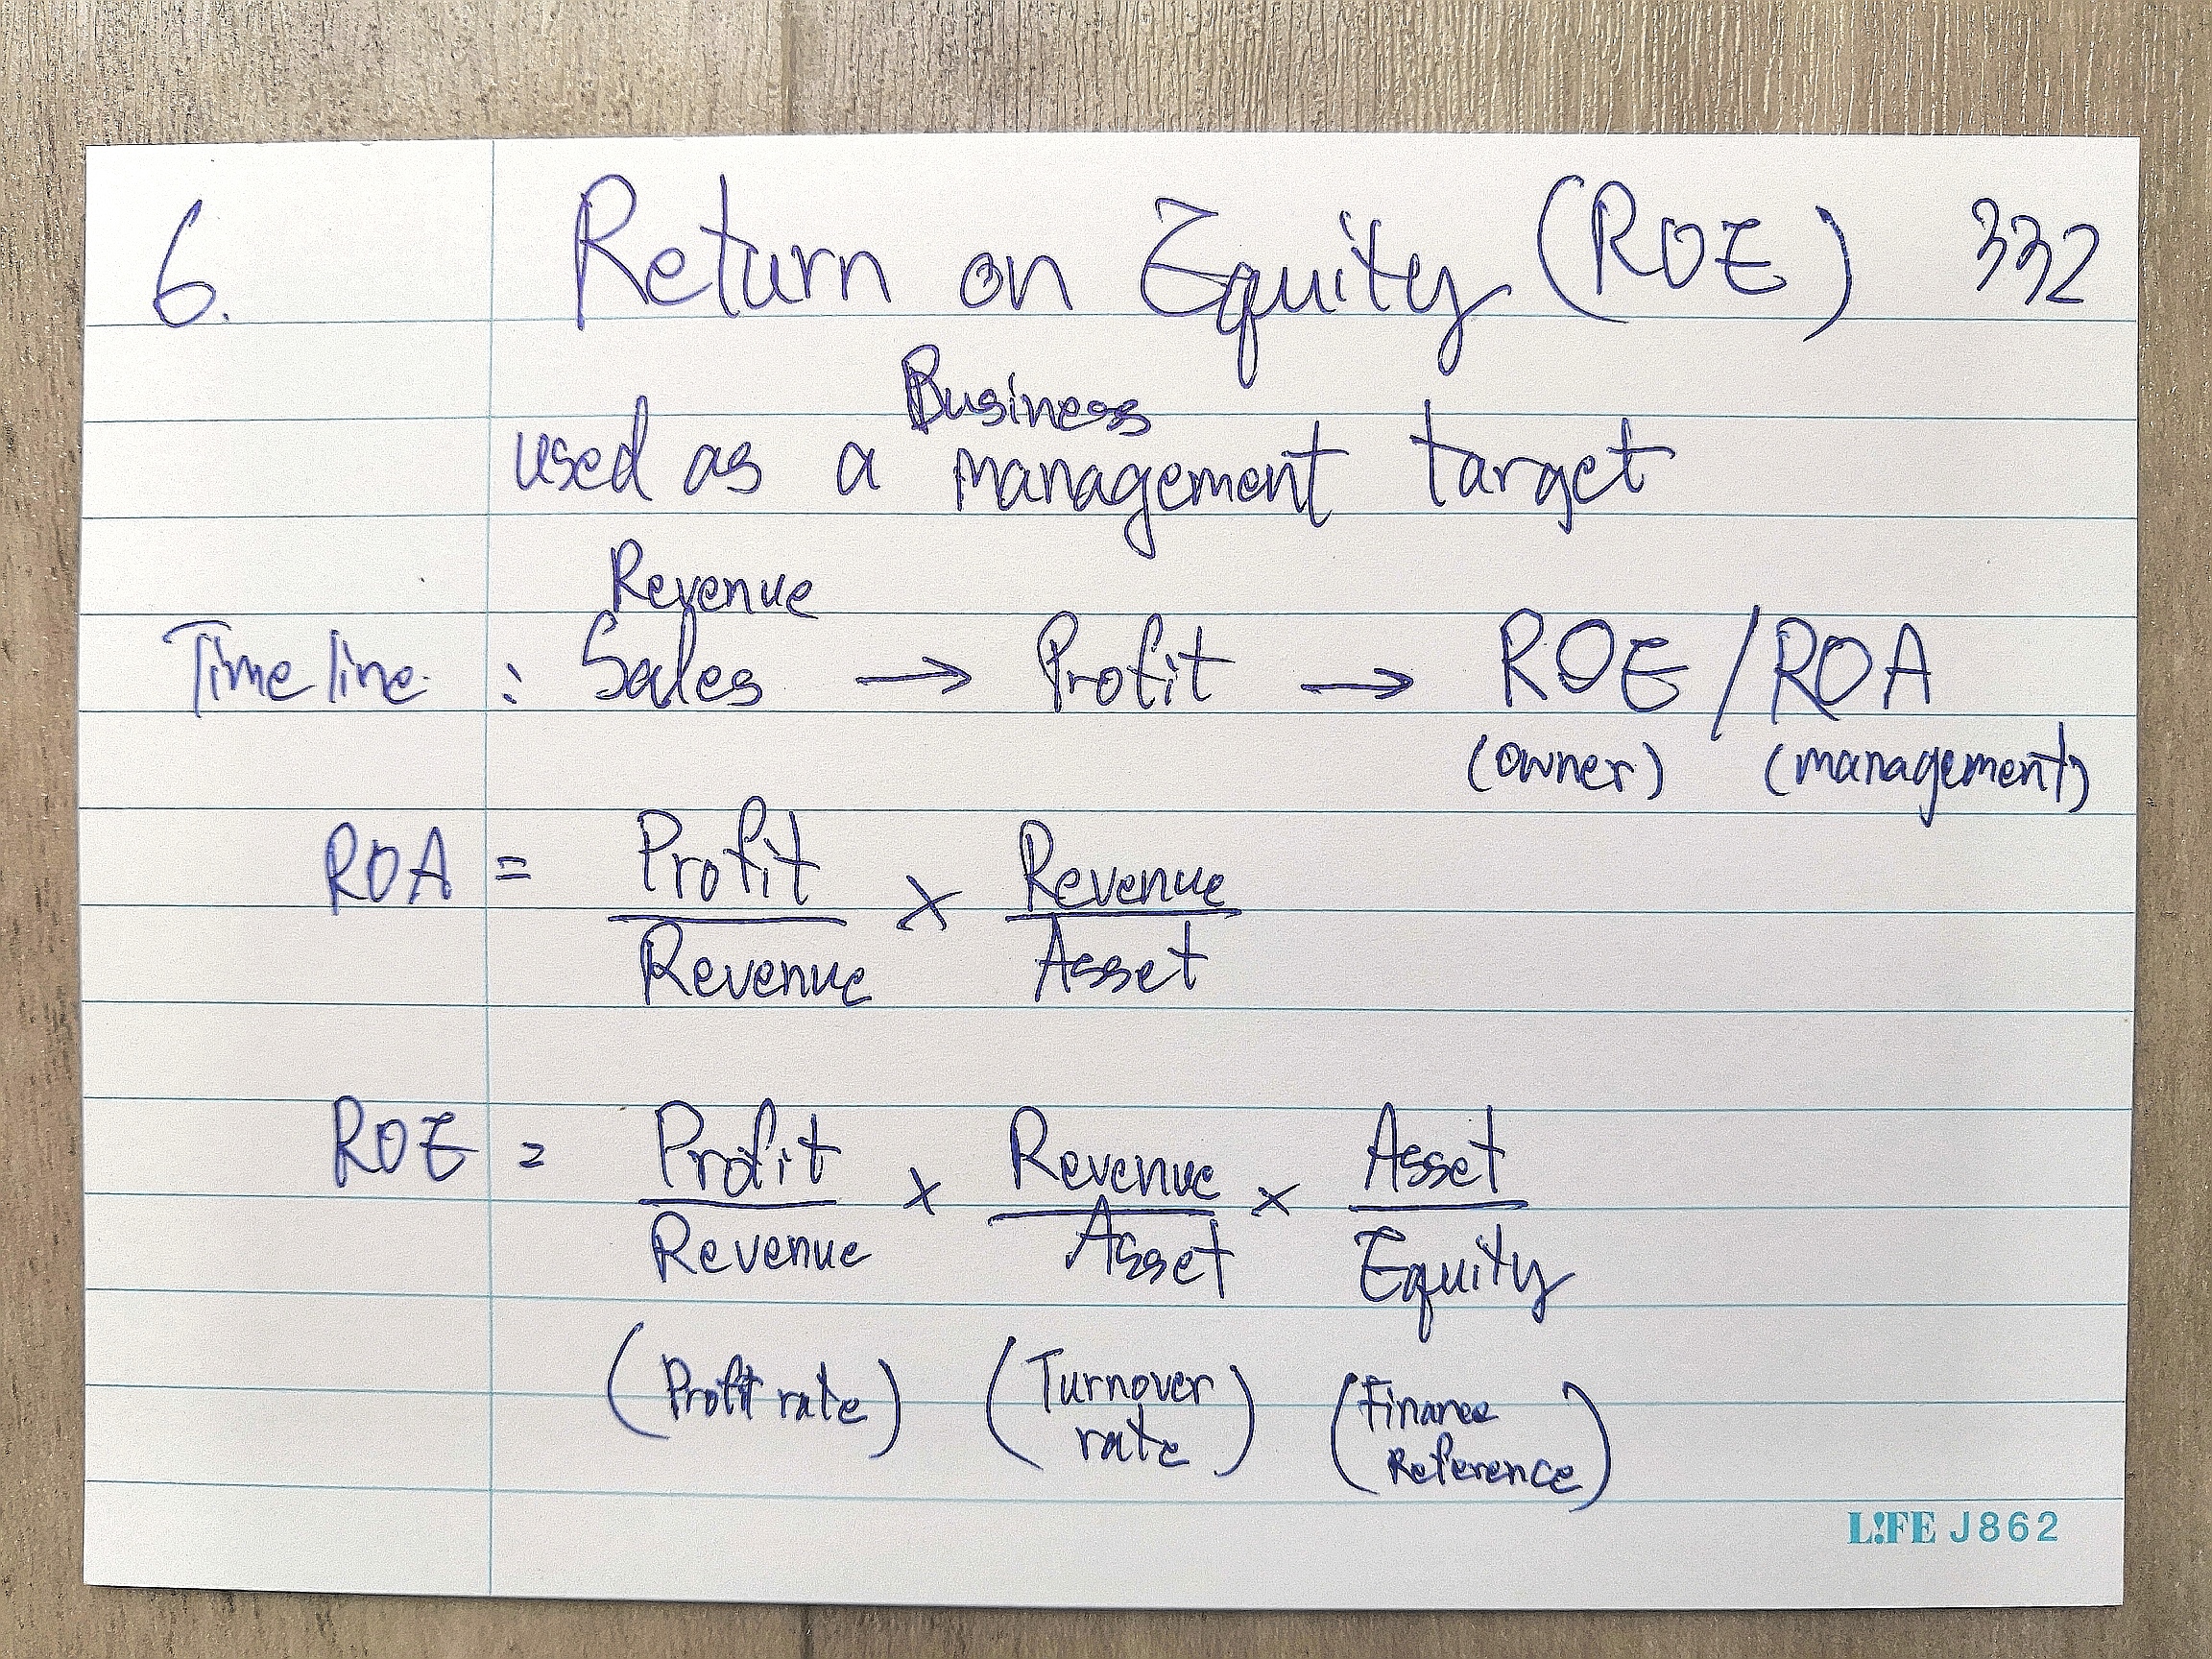 6. Return on Equity (ROE) 332
Business
used as a management target
Revenue
Time line : Sales → Profit → ROE / ROA
(owner) (management)
ROA = Profit / Revenue × Revenue / Asset
ROE = Profit / Revenue × Revenue / Asset × Asset / Equity
(Profit rate) (Turnover rate) (Finance Reference)
L!FE J862